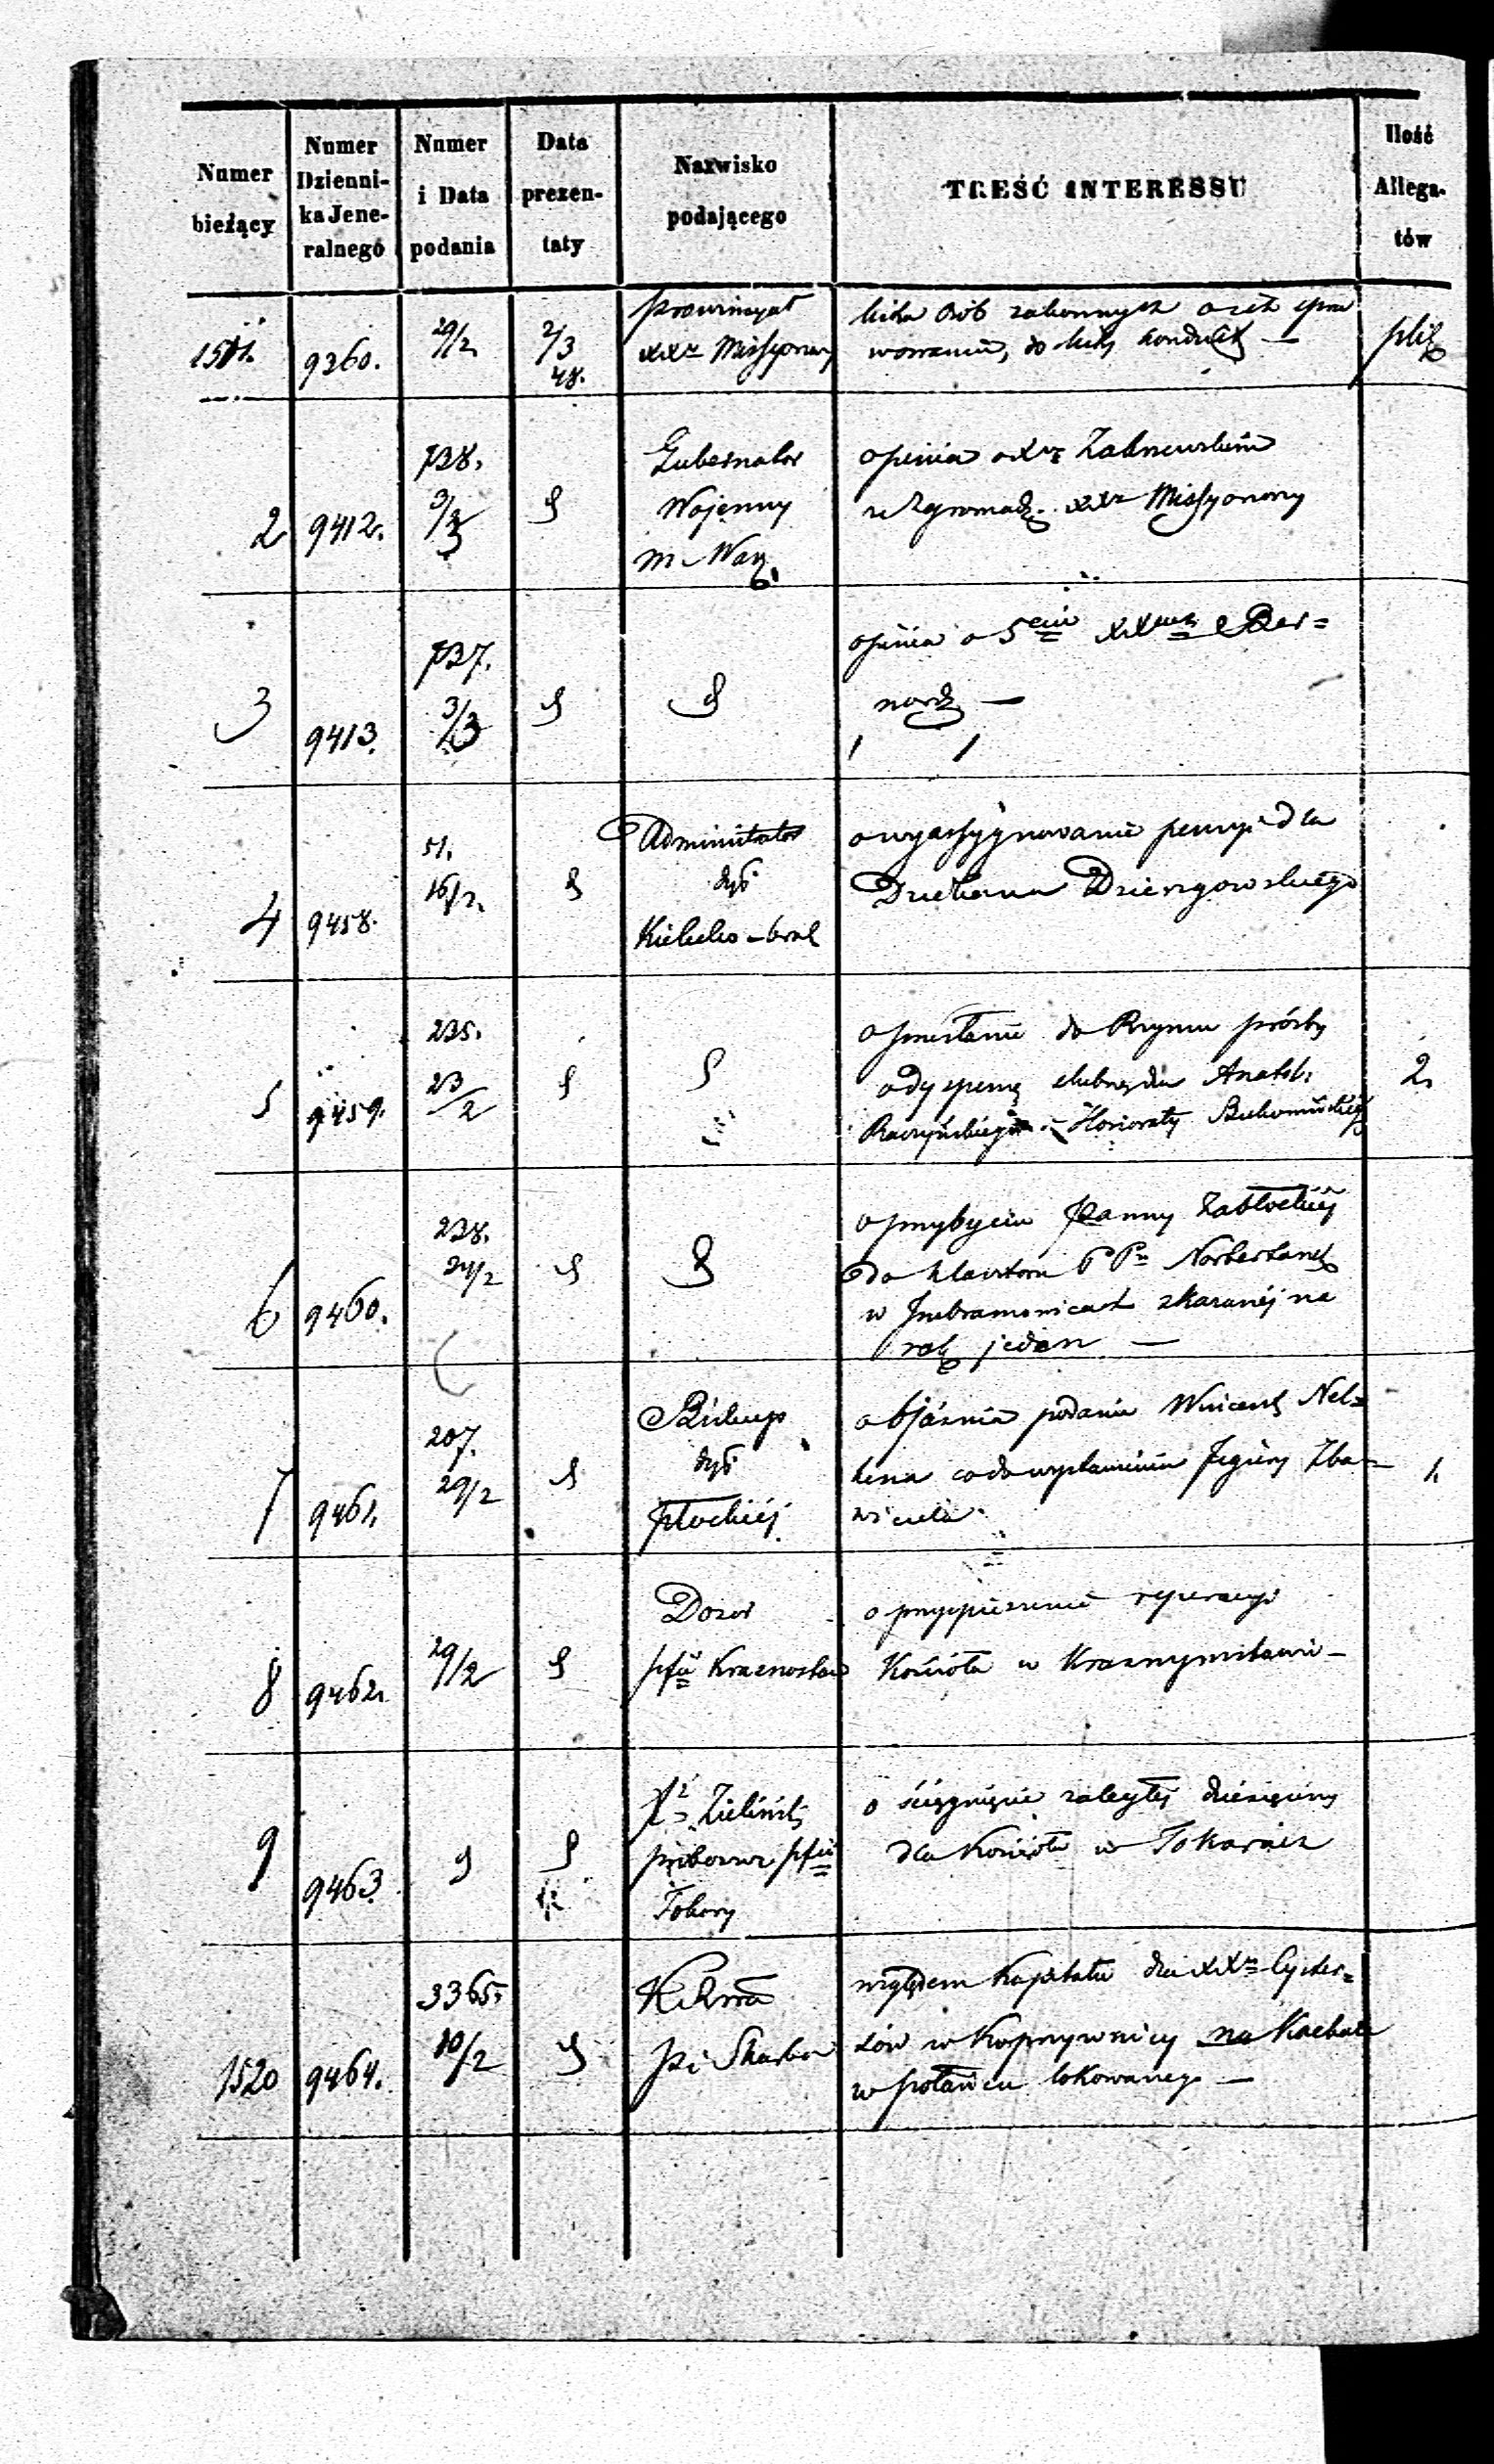 Numer bieżący
Numer Dzienni- ka Jene- ralnego
Numer i Data podania
Data prezen- taty
Nazwisko podającego
TREŚĆ INTERESSU
Ilość Allega- tów
1511. 9360. 29/2 2/3 48.
prowincyał
XXży Missyonarzy
lista osób zakonnych
wowaniu, do listy konduit —
plik
2 9412. 738. 3/3
Gubernator
Wojenny
m. Warz.
opinia o Xu
ze Zgromadz. XXży Missyonarzy
3 9413. 737. 3/3
opinia o 5ciu XXach Ber=
nard. —
4 9458. 51. 16/2.
Administrator
dyć
Kielecko-krak
o wyassygnowanie pensyi dla
Dziekana Dziergowskiego
5 9459. 235. 23/2
o przesłanie do Rzymu prośby
o dyspensę Anatol.
Raczyńskiego Honoraty
2.
6 9460. 238. 24/2
o przybyciu Panny Zabłockiéj
do klasztoru PPn Norbertanek
w Imbramowicach skazanéj na
rok jeden —
7 9461. 207. 29/2
Biskup
dyć
płockiéj
objaśnia podanie Wincent. Nel=
kena co do wystawienia figury Zba=
wiciela
1.
8 9462. 29/2
Dozór
pfii Krasnostaw
o przyspieszenie reperacyi
Kościoła w Krasnymstawie —
9 9463.
X. Zieliński
proboszcz pfii
Tokary
o ściągnięcie zaległéj dziesięciny
dla Kościoła w Tokarach
1520 9464. 3365. 10/2
KRM
Pi Skarbu
względem kapitału dla XXży Cyster=
sów w Koprzywnicy na Kahale
w Połańcu lokowanego —